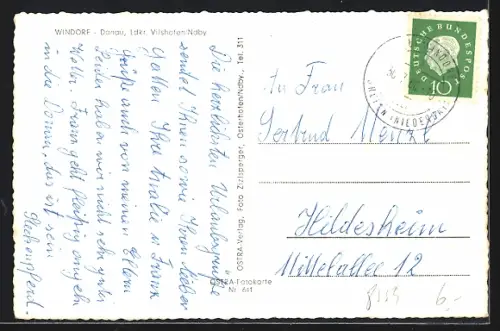 WINDORF - Donau, Ldkr. Vilshofen/Ndby.
Die herzlichsten Urlaubsgrüße
sendet Ihnen sowie Ihrem lieben
Gatten Ihre Amalie u. Franz
Grüße auch von meinen Eltern
Leider haben wir nicht sehr gutes
Wetter. Franz geht fleißig angeln
in die Donau, das ist sein
Steckenpferd.
OSTRA-Verlag, Foto Zitzlsperger, Osterhofen/Ndby., Tel. 311
OSTRA-Fotokarte
Nr.
DEUTSCHE BUNDESPOST
10
An Frau
Gertrud
Hildesheim
Mittelallee 12
8159
6,-